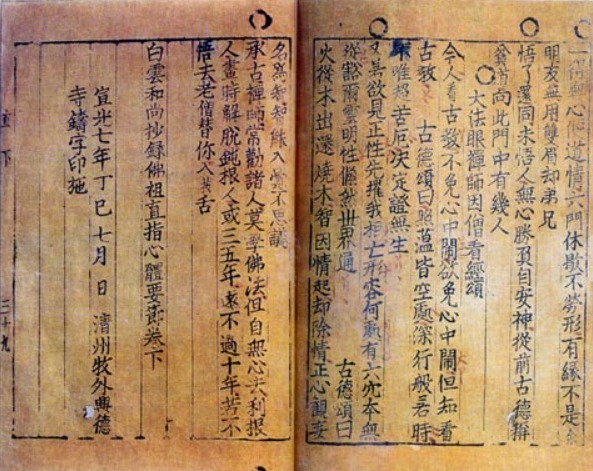 一得無心便道情六門休歇不勞形有緣不是
明友無用雙眉却弟兄
悟了還同未悟人無心勝負自安神從前古德稱
向此門中有幾人
大法眼禪師因僧看經頌
今人看古教不免心中鬧欲免心中鬧但知看
古教 古德頌曰照蘊皆空處深行般若時
唯超苦厄決定證無生
欲見正性先摧我相亡形容何處有六本無
蹤豁爾雲明性儼然世界通 古德頌曰
火從木出還燒木智因情起却除情正心觀妄
名爲智智能入不思議
承古禪師常勸諸人莫學佛法但自無心去利根
人晝時解脫鈍根人或三五年遠不過十年若不
悟去老僧替你入舌
白雲和尚抄錄佛祖直指心體要節卷下
宣光七年丁巳七月 日 淸州牧外興德
寺鑄字印施
直下 三十九